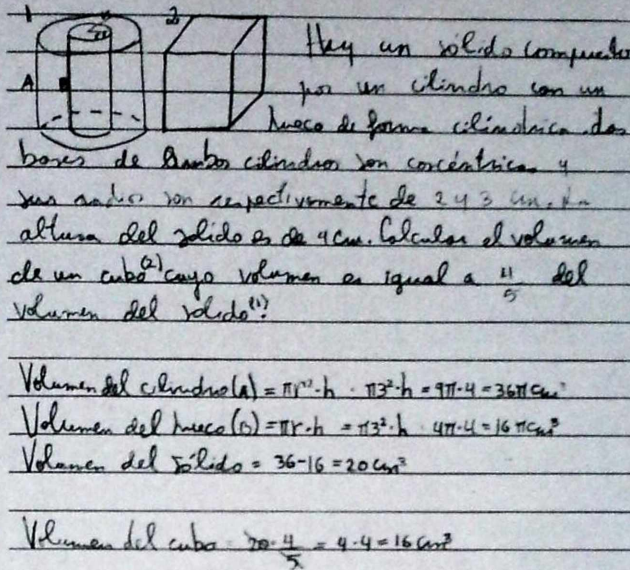 1 2
A B
Hay un sólido compuesto
por un cilindro con un
hueco de forma cilíndrica. Las
bases de ambos cilindros son concéntricas y
sus radios son respectivamente de 2 y 3 cm. La
altura del sólido es de 4 cm. Calcular el volumen
de un cubo(2) cuyo volumen es igual a 4/5 del
volumen del sólido(1)?
Volumen del cilindro(A) = πr²·h · π3²·h = 9π·4 = 36π cm³
Volumen del hueco(B) = πr·h = π3²·h 4π·4 = 16π cm³
Volumen del sólido = 36-16 = 20 cm³
Volumen del cubo 20·4/5 = 4·4 = 16 cm³